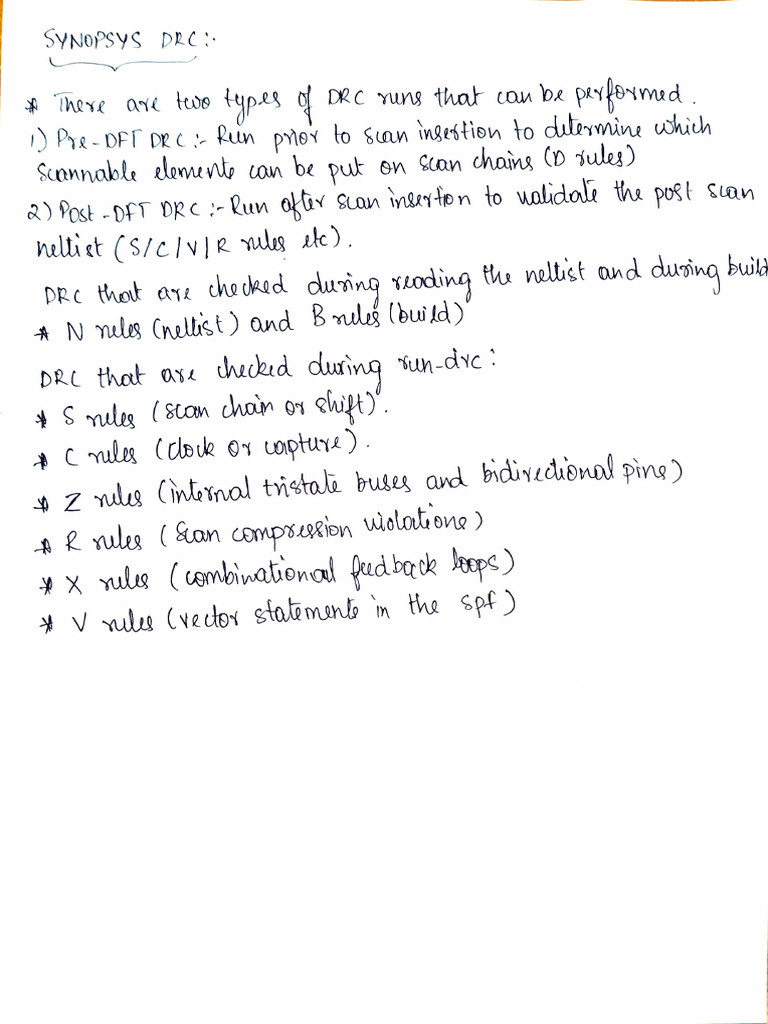 SYNOPSYS DRC:-
* There are two types of DRC runs that can be performed.
1) Pre-DFT DRC :- Run prior to scan insertion to determine which
scannable elements can be put on scan chains (D rules)
2) Post-DFT DRC :- Run after scan insertion to validate the post scan
netlist (S/C/V/R rules etc).
DRC that are checked during reading the netlist and during build
* N rules (netlist) and B rules (build)
DRC that are checked during run-drc:
* S rules (scan chain or shift).
* C rules (clock or capture).
* Z rules (internal tristate buses and bidirectional pins)
* R rules (Scan compression violations)
* X rules (combinational feedback loops)
* V rules (vector statements in the spf)